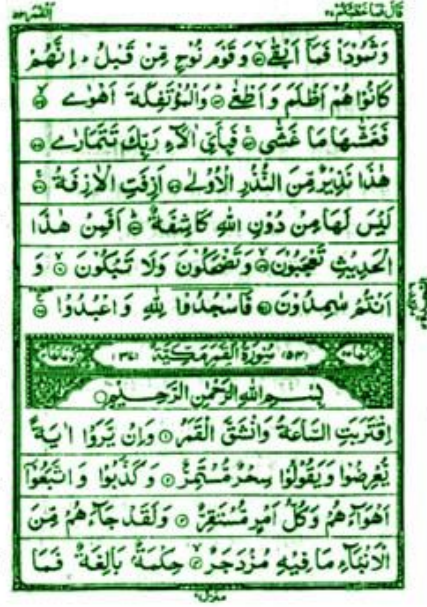 قَالَ فَمَا خَطْبُكُمْ ٢٧
اَلْقَمَر ٥٤
وَثَمُوْدَا۟ فَمَاۤ اَبْقٰى ۙ وَقَوْمَ نُوْحٍ مِّنْ قَبْلُ ؕ اِنَّهُمْ
كَانُوْا هُمْ اَظْلَمَ وَاَطْغٰى ؕ وَالْمُؤْتَفِكَةَ اَهْوٰى ۙ
فَغَشّٰىهَا مَا غَشّٰى ۚ فَبِاَيِّ اٰلَآءِ رَبِّكَ تَتَمَارٰى
هٰذَا نَذِيْرٌ مِّنَ النُّذُرِ الْاُوْلٰى اَزِفَتِ الْاٰزِفَةُ ۚ
لَيْسَ لَهَا مِنْ دُوْنِ اللّٰهِ كَاشِفَةٌ ؕ اَفَمِنْ هٰذَا
الْحَدِيْثِ تَعْجَبُوْنَ ۙ وَتَضْحَكُوْنَ وَلَا تَبْكُوْنَ ۙ وَ
اَنْتُمْ سٰمِدُوْنَ فَاسْجُدُوْا لِلّٰهِ وَاعْبُدُوْا
سُوْرَةُ الْقَمَرِ مَكِّيَّةٌ
بِسْمِ اللّٰهِ الرَّحْمٰنِ الرَّحِيْمِ
اِقْتَرَبَتِ السَّاعَةُ وَانْشَقَّ الْقَمَرُ وَاِنْ يَّرَوْا اٰيَةً
يُّعْرِضُوْا وَيَقُوْلُوْا سِحْرٌ مُّسْتَمِرٌّ وَكَذَّبُوْا وَاتَّبَعُوْۤا
اَهْوَآءَهُمْ وَكُلُّ اَمْرٍ مُّسْتَقِرٌّ وَلَقَدْ جَآءَهُمْ مِّنَ
الْاَنْۢبَآءِ مَا فِيْهِ مُزْدَجَرٌ ۙ حِكْمَةٌۢ بَالِغَةٌ فَمَا